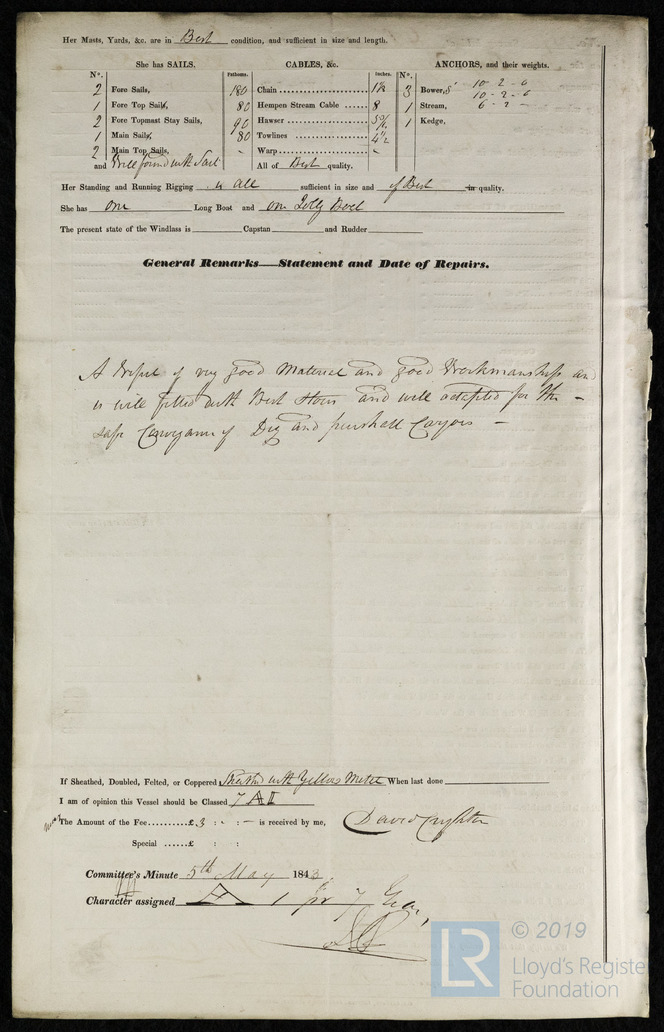 Her Masts, Yards, &c. are in Best condition, and sufficient in size and length.
She has SAILS. CABLES, &c. ANCHORS, and their weights.
N°. Fathoms. Inches. N°.
2 Fore Sails, 180 Chain 1 3 Bower, 10-2-0
10-2-0
1 Fore Top Sails, 80 Hempen Stream Cable 8 1 Stream, 6-2-
2 Fore Topmast Stay Sails, 90 Hawser 1 Kedge,
1 Main Sails, 80 Towlines 4½
2 Main Top Sails, - Warp -
and Well found with Sails All of Best quality.
Her Standing and Running Rigging is all sufficient in size and of Best in quality.
She has one Long Boat and one Jolly Boat
The present state of the Windlass is Capstan and Rudder
General Remarks—Statement and Date of Repairs.
A Vessel of very good Material and good Workmanship and
is well fitted with Best Stores and well adapted for the -
safe Conveyance of Dry and perishable Cargoes -
If Sheathed, Doubled, Felted, or Coppered Sheathed with Yellow Metal When last done
I am of opinion this Vessel should be Classed 7 A I
The Amount of the Fee £ 3 : - : - is received by me, David Crighton
Special £ : :
Committee's Minute 5th May 1843.
Character assigned A 1 for 7 Years,
© 2019
LR Lloyd's Register
Foundation